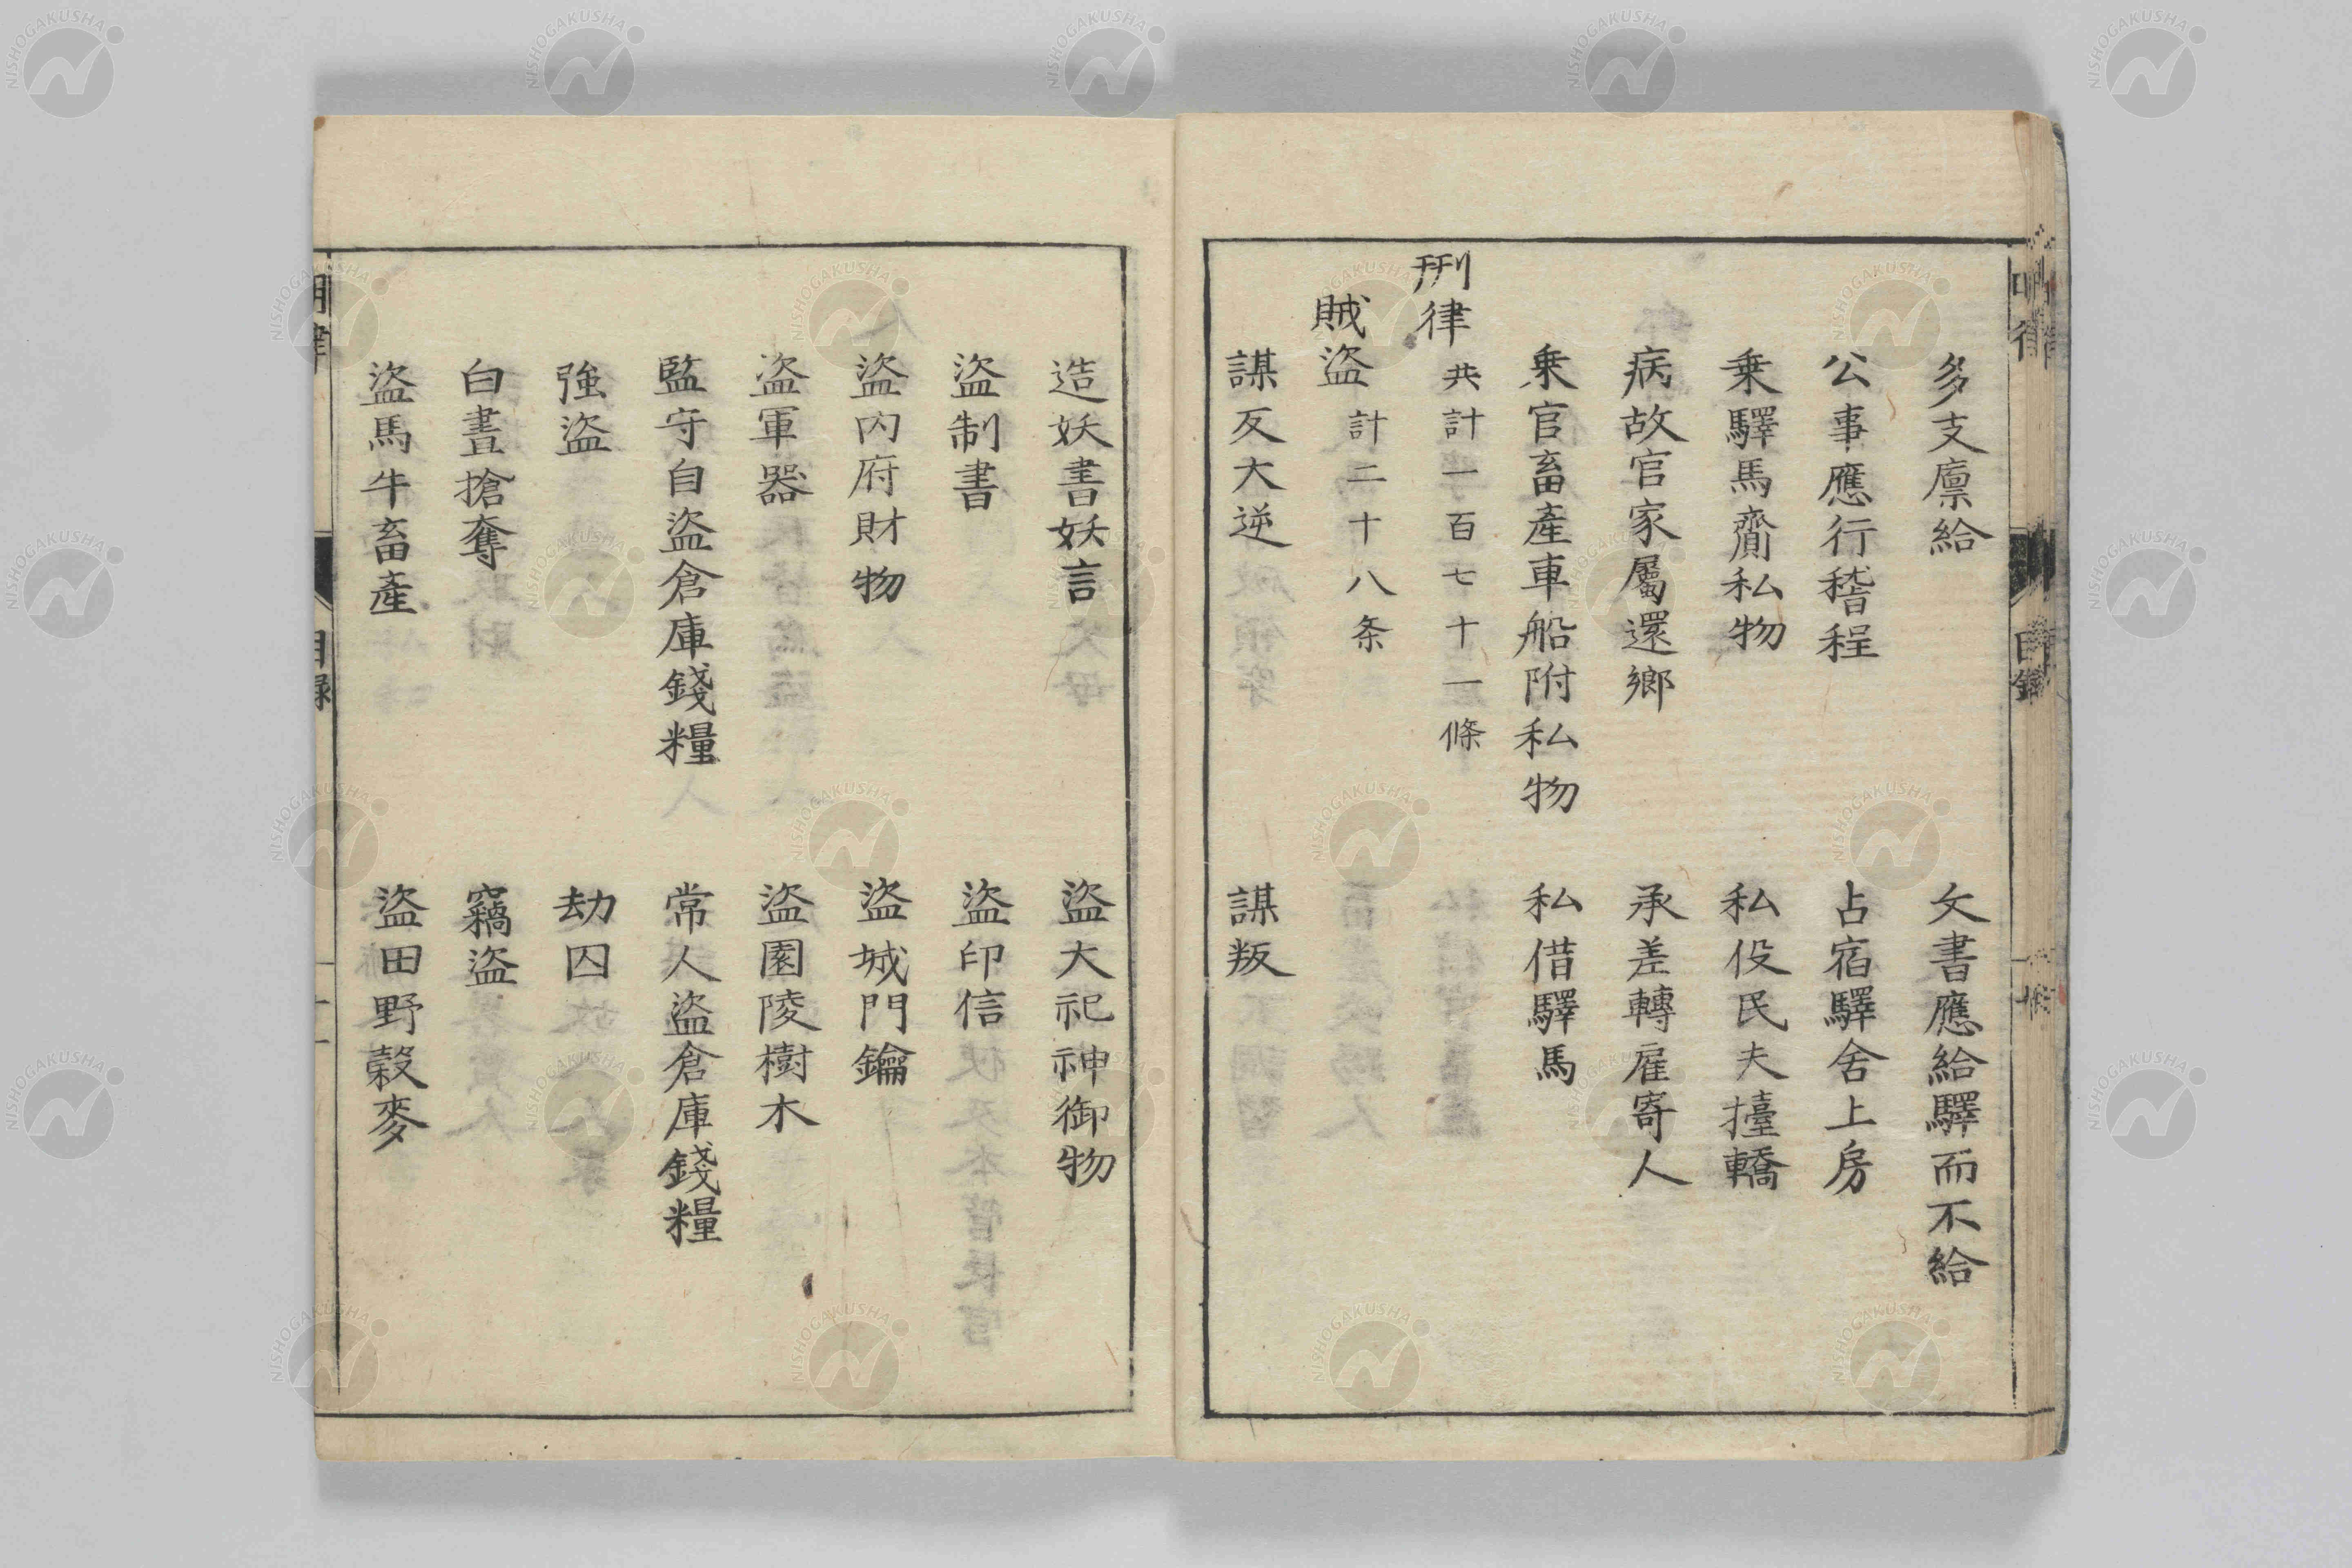 多支廩給　文書應給驛而不給
公事應行稽程　占宿驛舍上房
乗驛馬齎私物　私役民夫擡轎
病故官家屬還鄉　承差轉雇寄人
乗官畜產車船附私物　私借驛馬
刑律 共計一百七十一條
賊盗 計二十八条
謀反大逆　謀叛
造妖書妖言　盗大祀神御物
盗制書　盗印信
盗内府財物　盗城門鑰
盗軍器　盗園陵樹木
監守自盗倉庫錢糧　常人盗倉庫錢糧
強盗　劫囚
白晝搶奪　竊盗
盗馬牛畜產　盗田野穀麥
明律　目録　十一
NISHOGAKUSHA